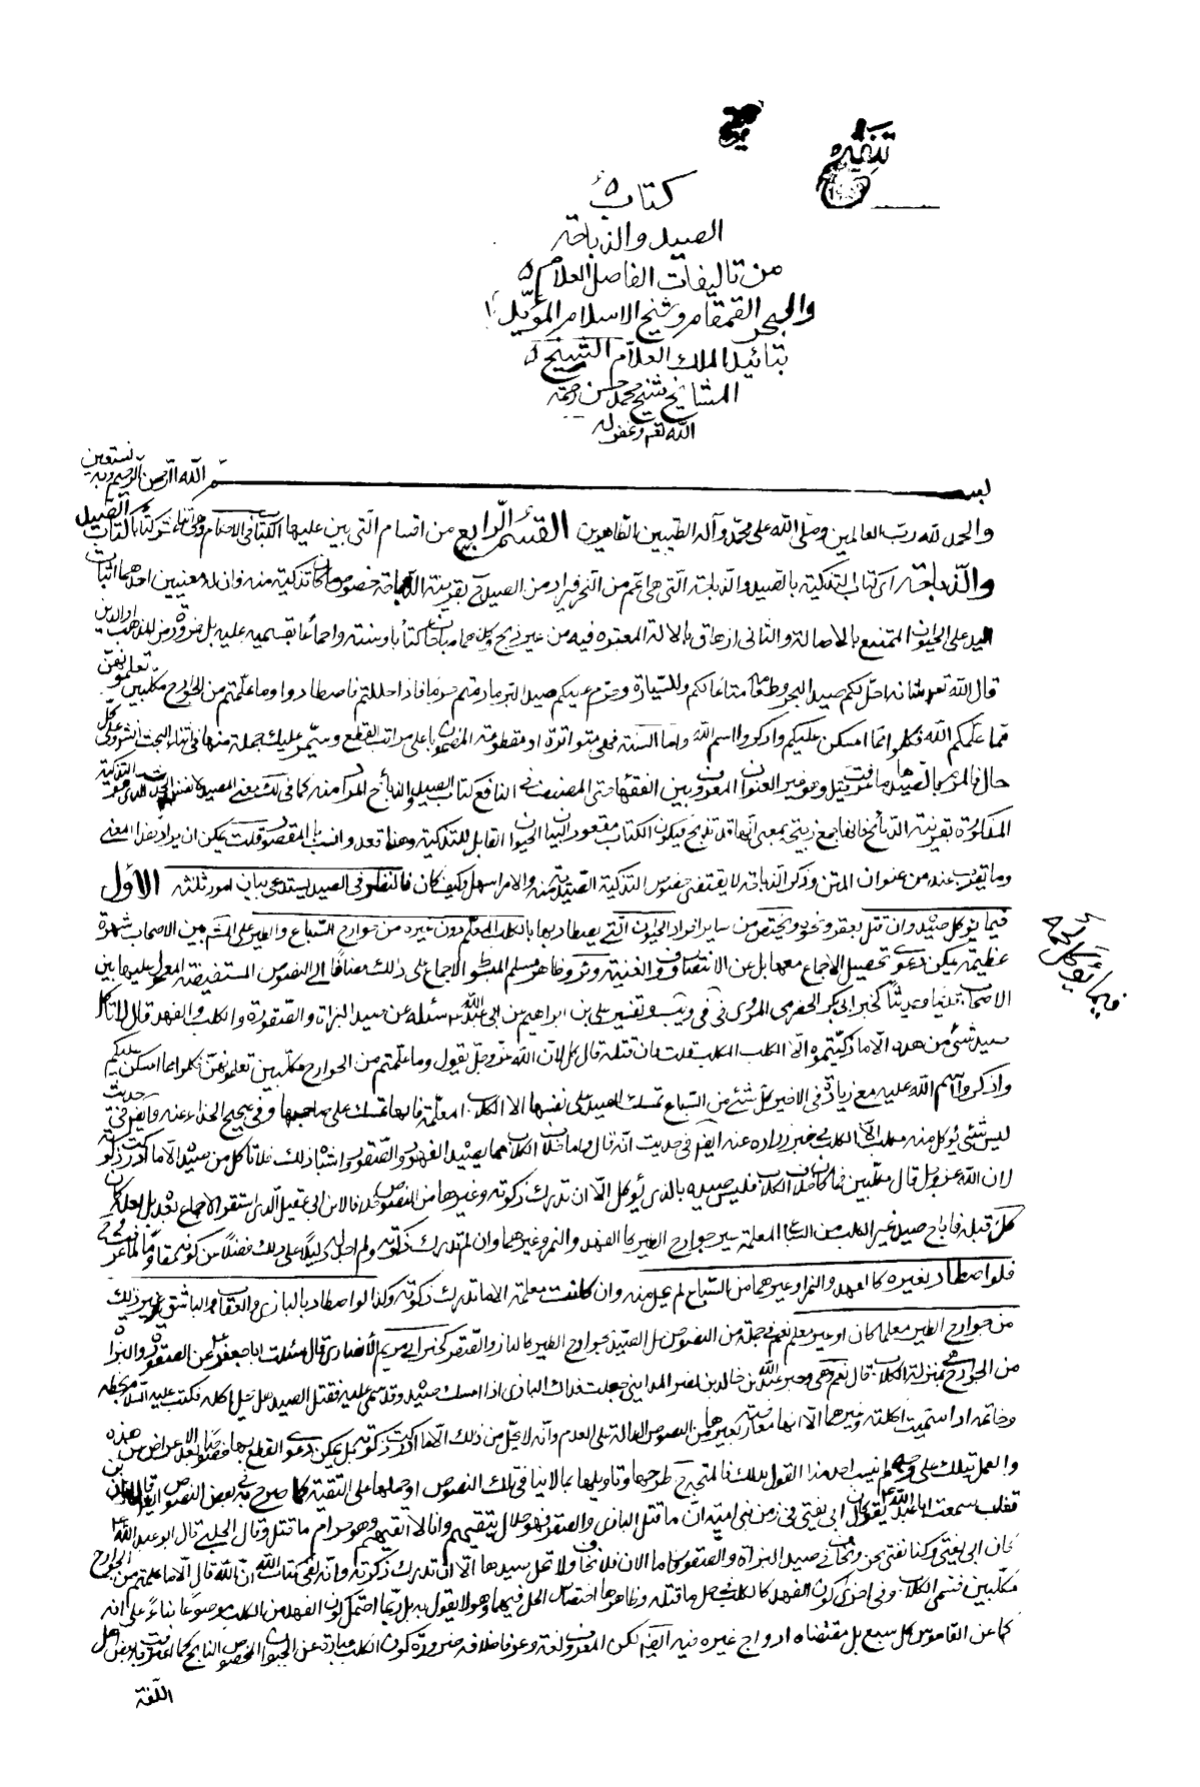 كتاب
الصيد والذباحة
من تاليفات الفاضل العلام
والبحر القمقام وشيخ الاسلام المؤيد
بتائيد الملك العلام الشيخ
المشايخ شيخ محمد حسن رحمة
الله تعالى وغفر له
بسم الله الرحمن الرحيم وبه نستعين
والحمد لله رب العالمين وصلى الله على محمد وآله الطيبين الطاهرين القسم الرابع من اقسام التى بين عليها الكتاب فى الاحكام وهى اثنا عشر كتابا كتاب الصيد
والذباحة اى كتاب التذكية بالصيد والذباحة التى هى اعم من النحر فيراد من الصيد ح بقرينة الذباحة خصوص ما كان تذكية منه وان له معنيين احدهما اثبات
اليد على الحيوان الممتنع بالاصالة والثانى ازهاق بالالة المعتبرة فيه من غير ذبح وكل مباح كتابا وسنة واجماعا بقسميه عليه بل ضرورة من المذهب او الدين
قال الله تعالى شانه احل لكم صيد البحر وطعامه متاعا لكم وللسيارة وحرم عليكم صيد البر ما دمتم حرما فاذا حللتم فاصطادوا وما علمتم من الجوارح مكلبين تعلمونهن
مما علمكم الله فكلوا مما امسكن عليكم واذكروا اسم الله واما السنة فهى متواترة او مقطوعة المضمون باعلى مراتب القطع وستمر عليك جملة منها فى اثناء البحث انشاء الله وعلى كل
حال فالمراد بالصيد هنا
المذكورة بقرينة الذبائح فانها جمع ذبيحة بمعنى انها قد تذبح فيكون الكتاب مقعود البيان الحيوان القابل للتذكية وهذا تعدد وانسب بالمقصود قلت يمكن ان يراد هذا المعنى
وما يقرب عنه من عنوان المتن وذكر الذباحة لا يقتضى خصوص التذكية الصيدية منه والامر سهل وكيف كان فالنظر فى الصيد يستدعى بيان امور ثلثة الاول
فيما يؤكل صيده وان قتل بعقر ونحوه ويختص من ساير افراد الحيوان التى يصطاد بها بالكلب المعلم دون غيره من جوارح السباع والطير على المشهور بين الاصحاب شهرة
فيما يؤكل لحمه
عظيمة يمكن دعوى تحصيل الاجماع معها بل عن الانتصار والغنية وئر وظاهر مسلم المبسوط الاجماع على ذلك مضافا الى النصوص المستفيضة المعول عليها بين
الاصحاب قديما وحديثا كخبر ابى بكر الحضرمى المروى فى فى ويب وتفسير على بن ابراهيم عن ابى عبد الله ع سئله عن صيد البزاة والصقورة والكلب والفهد قال لا تاكل
صيد شئ من هذه الا ما ذكيتموه الا الكلب المكلب قلت فان قتله قال كل لان الله عز وجل يقول وما علمتم من الجوارح مكلبين تعلمونهن فكلوا مما امسكن عليكم
واذكروا اسم الله عليه مع زيادة فى الاخير كل شئ من السباع تمسك الصيد على نفسها الا الكلاب المعلمة فانها تمسك على صاحبها وفى صحيح الحذاء عنه وايضا فى حديث
ليس شئ يؤكل منه مكلب الا الكلب خبر زرارة عنه ايضا فى حديث انه قال وما خلا الكلاب مما يصيد الفهود والصقور واشباه ذلك فلا تاكل من صيده الا ما ادركت ذكوته
لان الله عز وجل قال مكلبين فما كان خلاف الكلاب فليس صيده بالذى يؤكل الا ان تدرك ذكوته وغيرها من النصوص خلافا لابن ابى عقيل الذى استقر الاجماع بعده بل لعله كان
كك قبله فاباح صيد غير الكلب من السباع المعلمة غير جوارح الطير كالفهد والنمر وغيرهما وان لم تدرك ذكوته ولم اجد له دليلا على ذلك فضلا عن كونه مقاوما لما عرفت
فلو اصطاد بغيره كالفهد والنمر وغيرهما من السباع لم يحل منه وان كانت معلمة الا ما تدرك ذكوته وكذا لو اصطاد بالبازى والعقاب والباشق وغير ذلك
من جوارح الطير معلما كان او غير معلم نعم فى جملة من النصوص حل الصيد بجوارح الطير كالباز والصقر كخبر ابى مريم الأنصارى قال سئلت ابا جعفر ع عن الصقورة والبزاة
من الجوارح هى بمنزلة الكلاب قال نعم هى وخبر عبد الله بن خالد بن نصر المداينى جعلت فداك البازى اذا امسك صيده وقد سمى عليه فقتل الصيد هل يحل اكله فكتب عليه السلام بخطه
وخاتمه اذا سميت اكلته وغيرهما الا انها معارضة بغيرها من النصوص الدالة على العدم وانه لا يحل من ذلك الا ما ادركت ذكوته بل يمكن دعوى القطع بها خصوصا بعد الاعراض عن هذه
والعمل بتلك على وجه لم ينسب احد هذا القول بذلك فالمتجه ح طرحها وتاويلها بما لا ينافى تلك النصوص او حملها على التقية كما صرح به بعض النصوص قال ابان بن
تغلب سمعت ابا عبد الله ع يقول كان ابى يفتى فى زمن بنى امية ان ما قتل البازى والصقر فهو حلال يتقيهم وانا لا اتقيهم وهو حرام ما قتل وقال الحلبى قال ابو عبد الله ع
كان ابى يفتى وكنا نفتى نحن ونخاف فى صيد البزاة والصقور فاما الان فلا نخاف ولا تحل صيدها الا ان تدرك ذكوته وانه لفى كتاب الله ان الله قال الا ما علمتم من الجوارح
مكلبين فسمى الكلاب وفى اخرى كون الفهد كالكلب فى حل ما قتله وظاهرها اختصاص الحل فيهما وهو لا يقول به بل ربما احتمل كون الفهد من الكلب موضوعا بناء على انه
كما عن القاموس كل سبع بل مقتضاه ادراج غيره فيه ايضا لكن المعروف لغة وعرفا خلافه ضرورة كون الكلب عبارة عن الحيوان المخصوص النابح كما اعترف به بعض اهل
اللغة